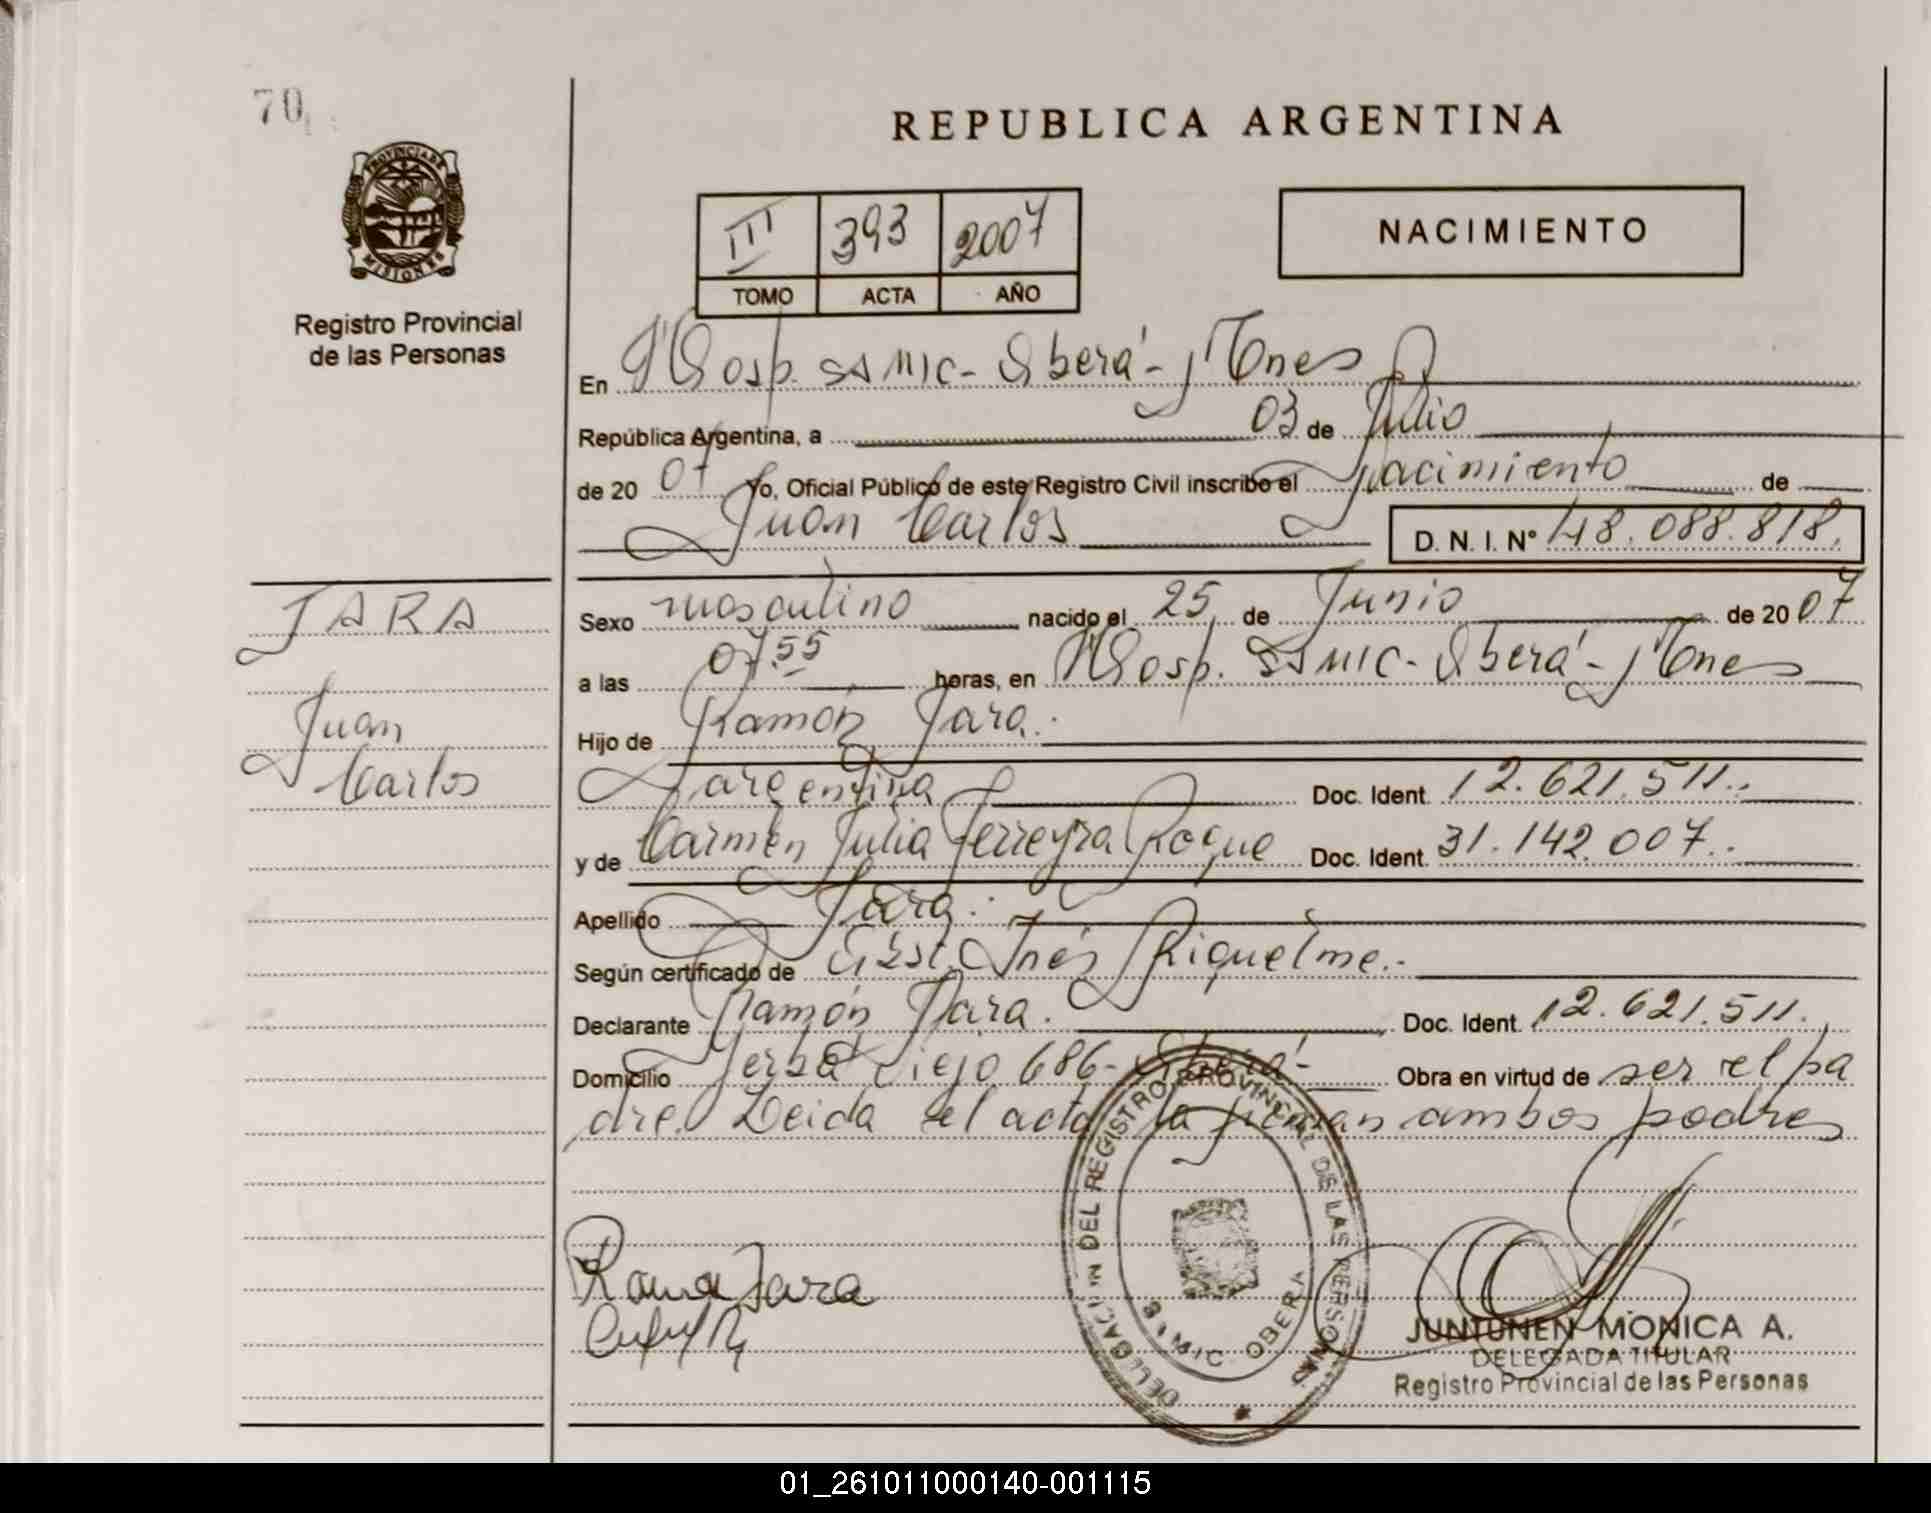 70
REPUBLICA ARGENTINA
PROVINCIA DE
MISIONES
Registro Provincial
de las Personas
III 393 2007
TOMO ACTA AÑO
NACIMIENTO
En Hosp. SAMIC - Oberá - Mnes
República Argentina, a 03 de Julio
de 20 07 Yo, Oficial Público de este Registro Civil inscribo el Nacimiento de
Juan Carlos D. N. I. Nº 48.088.818.
JARA
Juan
Carlos
Sexo masculino nacido el 25 de Junio de 20 07
a las 07.55 horas, en Hosp. SAMIC - Oberá - Mnes
Hijo de Ramón Jara.
argentina Doc. Ident. 12.621.511.
y de Carmen Julia Ferreyra Roque Doc. Ident. 31.142.007.
Apellido Jara.
Según certificado de Inés Riquelme.
Declarante Ramón Jara. Doc. Ident. 12.621.511.
Domicilio 686 - Oberá - Obra en virtud de ser el pa
dre. Leida el acta la firman ambos padres
Jara
DELEGACION DEL REGISTRO PROVINCIAL DE LAS PERSONAS
SAMIC OBERA
JUNTUNEN MONICA A.
DELEGADA TITULAR
Registro Provincial de las Personas
01_261011000140-001115